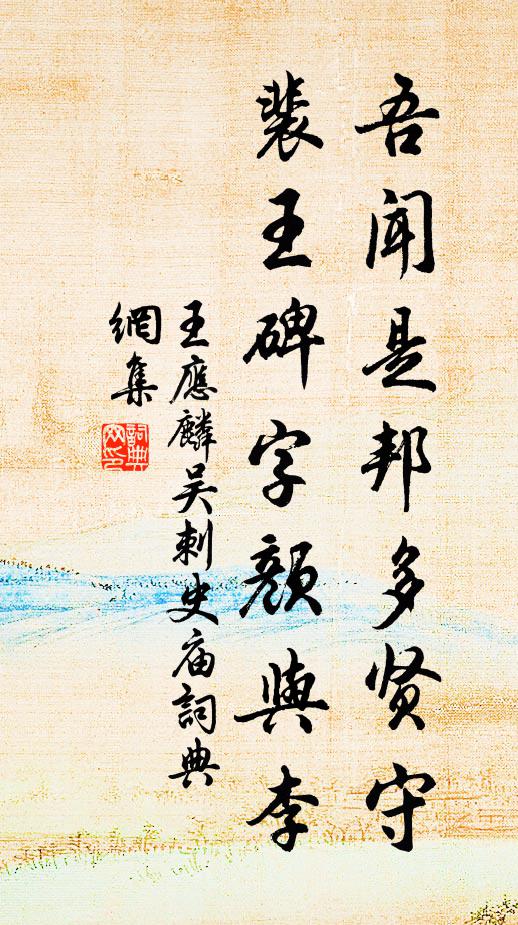 吾聞是邦多贤守
裴王碑字顏與李
王應麟吴刺史庙詞典
網集
詞典